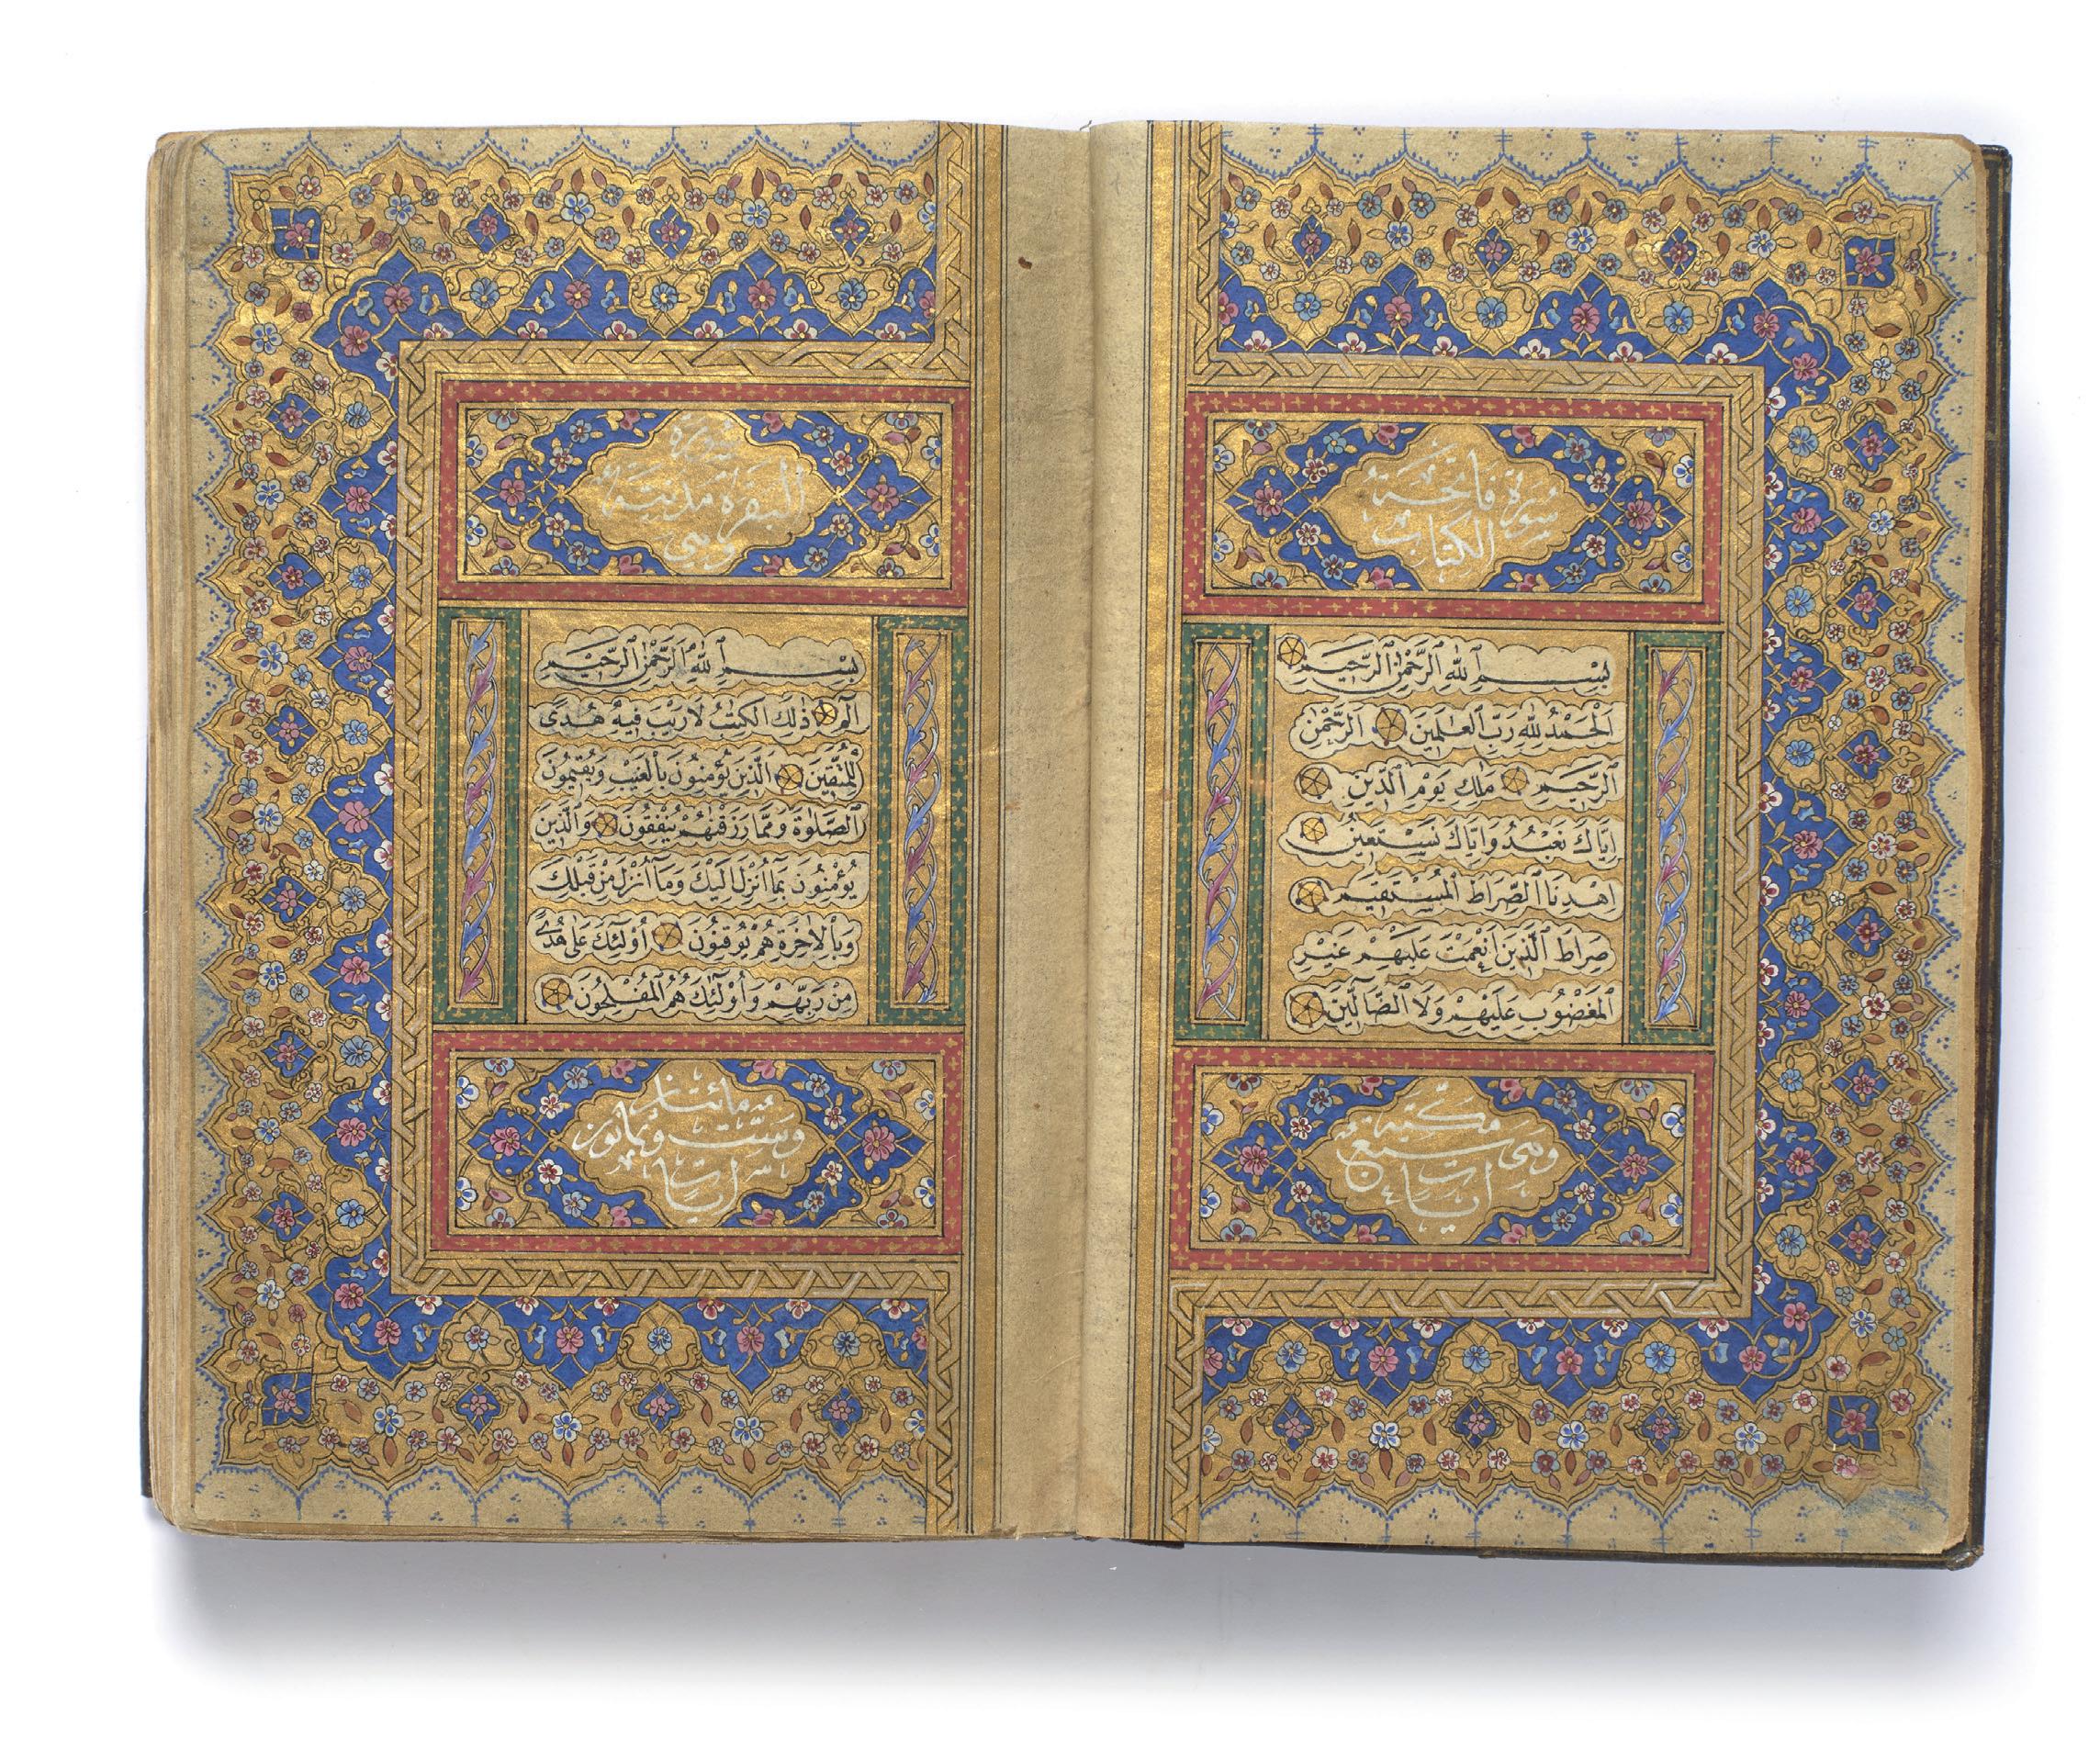 سُورَةُ فَاتِحَةِ
الْكِتَابِ
بِسْمِ ٱللَّهِ ٱلرَّحْمٰنِ ٱلرَّحِيمِ
اَلْحَمْدُ لِلّٰهِ رَبِّ ٱلْعٰلَمِينَ اَلرَّحْمٰنِ
ٱلرَّحِيمِ مٰلِكِ يَوْمِ ٱلدِّينِ
اِيَّاكَ نَعْبُدُ وَاِيَّاكَ نَسْتَعِينُ
اِهْدِنَا ٱلصِّرَاطَ ٱلْمُسْتَقِيمَ
صِرَاطَ ٱلَّذِينَ اَنْعَمْتَ عَلَيْهِمْ غَيْرِ
ٱلْمَغْضُوبِ عَلَيْهِمْ وَلَا ٱلضَّالِّينَ
مَكِّيَّة
وَهِيَ سَبْعُ
اٰيَات
سُورَةُ
الْبَقَرَةِ مَدَنِيَّة
وَهِيَ
بِسْمِ ٱللَّهِ ٱلرَّحْمٰنِ ٱلرَّحِيمِ
الٓمٓ ذٰلِكَ الْكِتٰبُ لَا رَيْبَ فِيهِ هُدًى
لِلْمُتَّقِينَ اَلَّذِينَ يُؤْمِنُونَ بِٱلْغَيْبِ وَيُقِيمُونَ
ٱلصَّلٰوةَ وَمِمَّا رَزَقْنٰهُمْ يُنْفِقُونَ وَالَّذِينَ
يُؤْمِنُونَ بِمَٓا اُنْزِلَ اِلَيْكَ وَمَٓا اُنْزِلَ مِنْ قَبْلِكَ
وَبِٱلْاٰخِرَةِ هُمْ يُوقِنُونَ اُولٰٓئِكَ عَلٰى هُدًى
مِنْ رَبِّهِمْ وَاُولٰٓئِكَ هُمُ ٱلْمُفْلِحُونَ
مِائَتَان
وَسِتّ وَثَمَانُونَ
اٰيَات